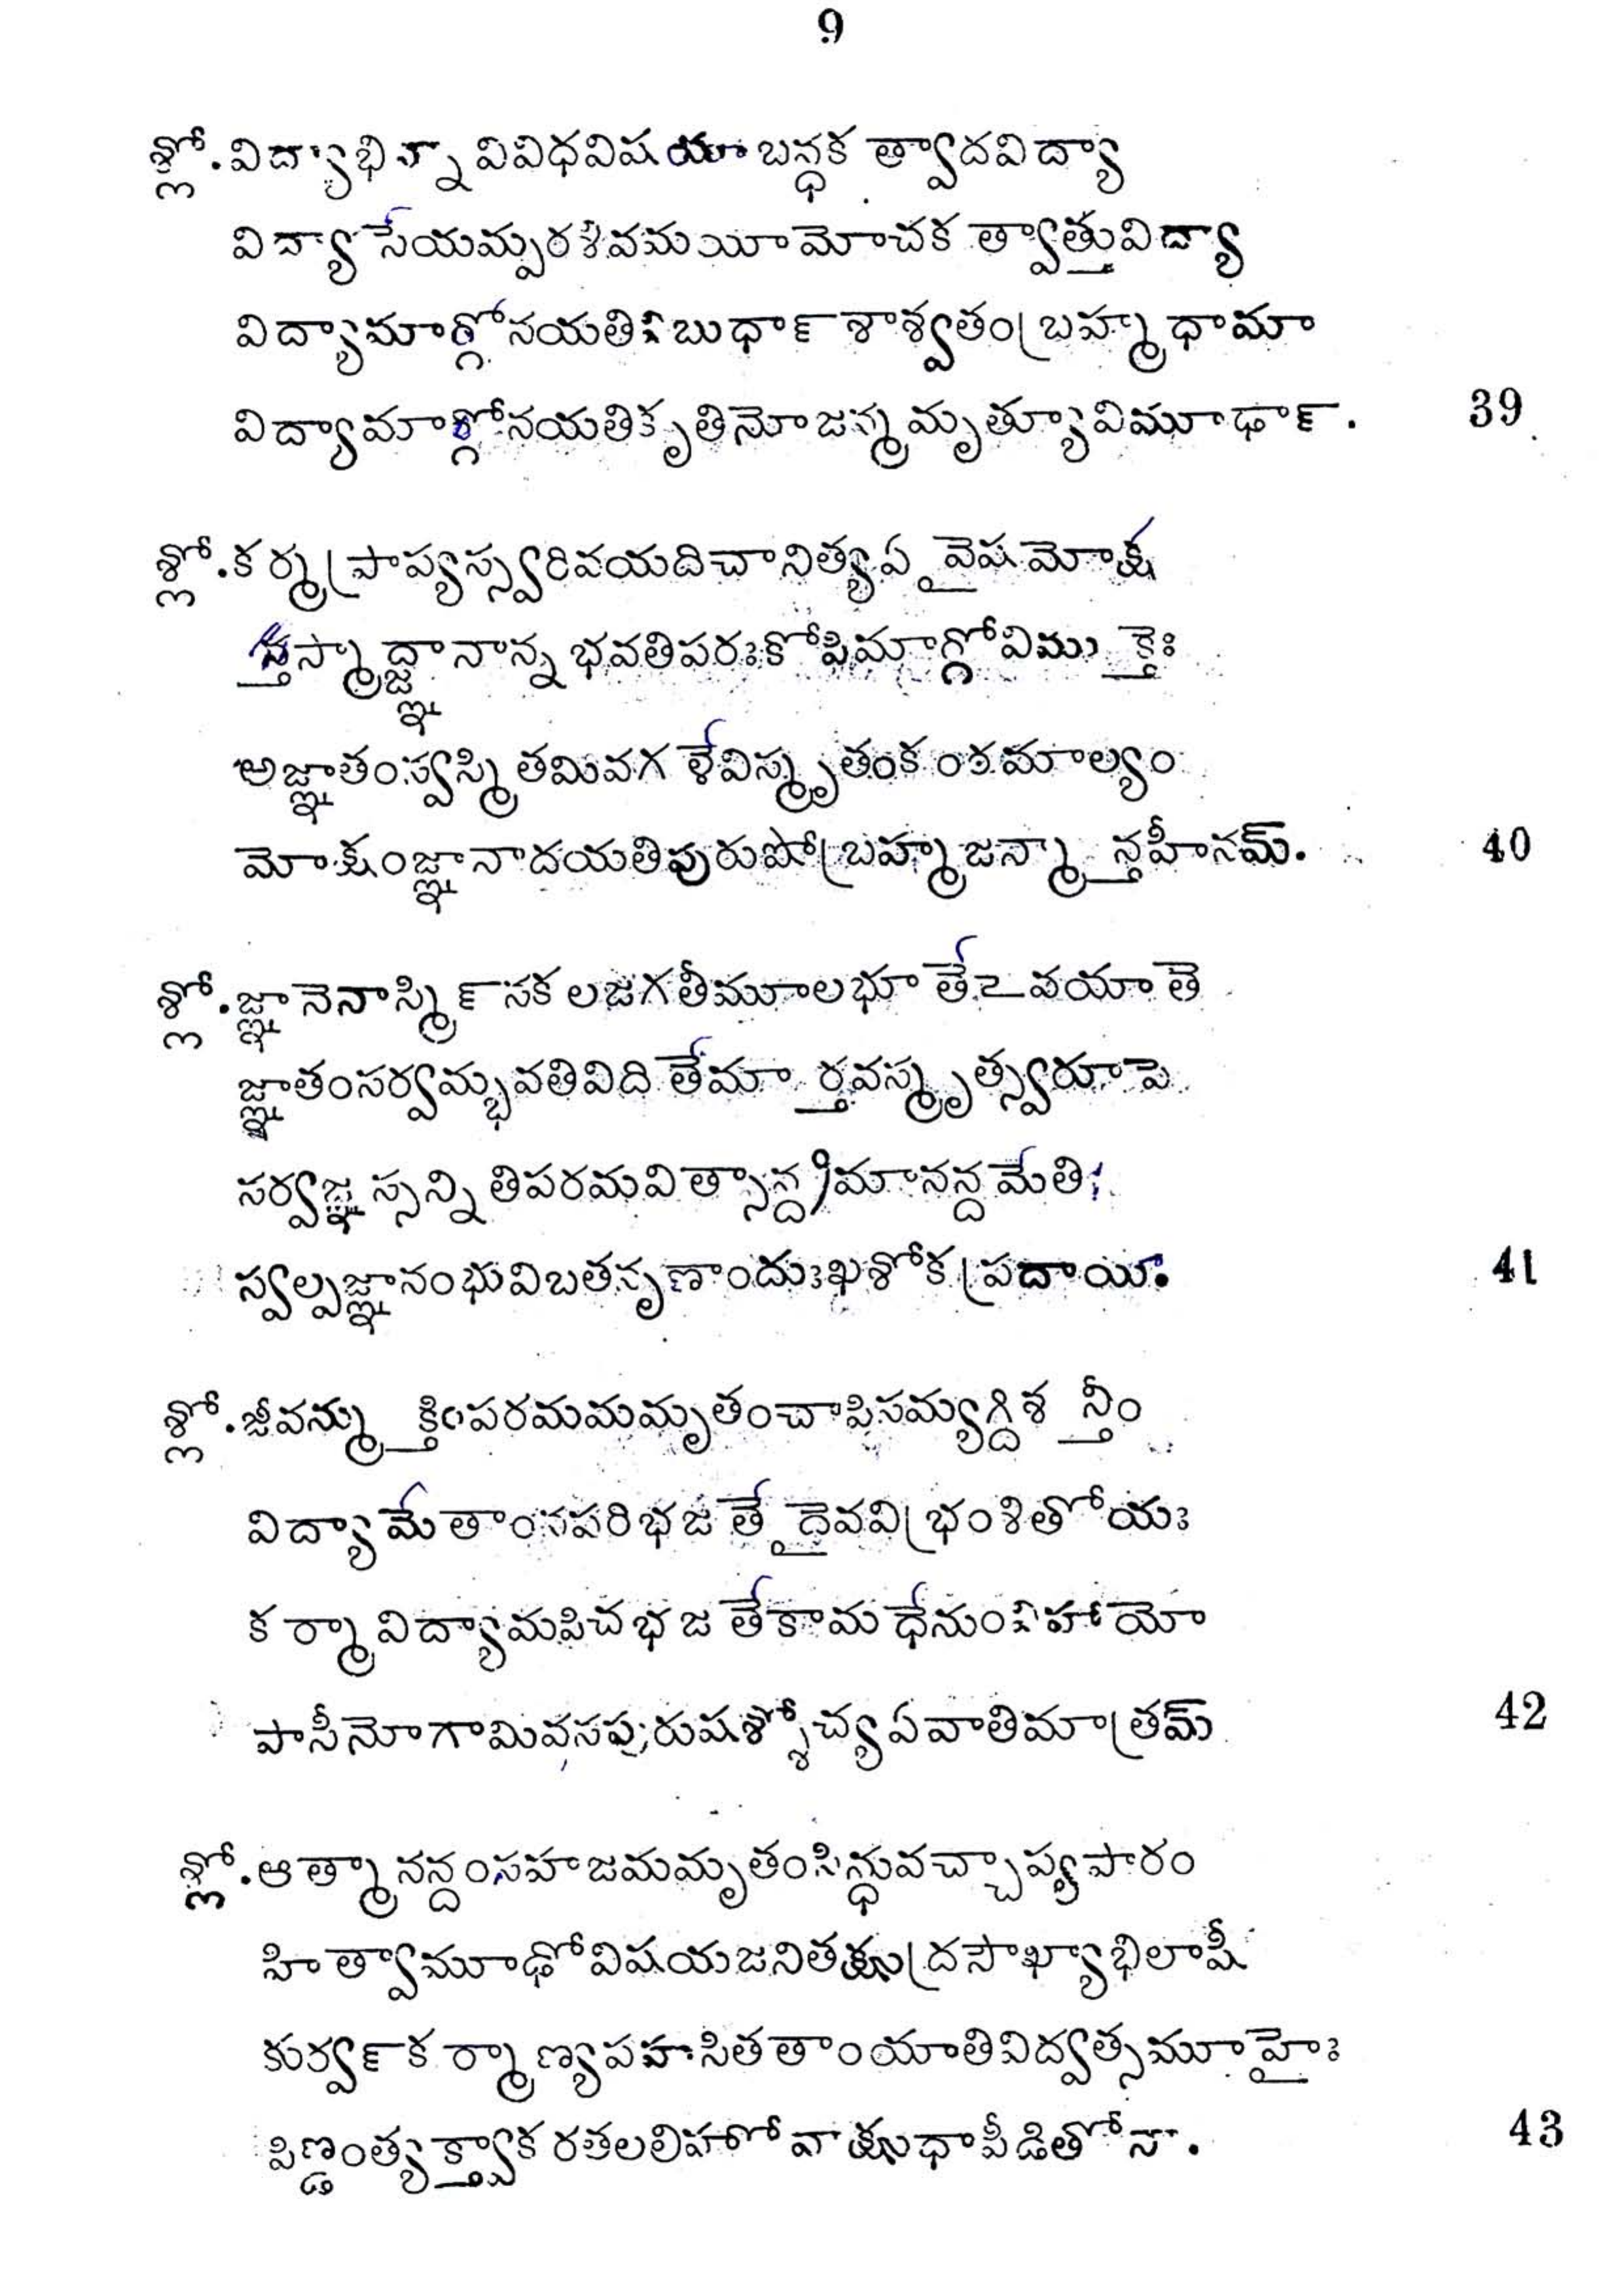 9
శ్లో. విద్యాభిన్నా వివిధవిషయాబన్ధక త్వాదవిద్యా
విద్యా సేయమ్పరశివమయీమోచక త్వాత్తువిద్యా
విద్యామార్గ్గోనయతివిబుధా౯ శాశ్వతంబ్రహ్మధామా
విద్యామార్గ్గోనయతికృతినోజన్మమృత్యూవిమూఢా౯. 39
శ్లో. కర్మప్రాప్యస్స్వరివయదిచానిత్యఏవైషమోక్ష
స్తస్మాద్జ్ఞానాన్న భవతిపరఃకోపిమార్గ్గోవిముక్తైః
అజ్ఞాతంస్వస్మితమివగళేవిస్మృతంకంఠమాల్యం
మోక్షంజ్ఞానాదయతిపురుషోబ్రహ్మజన్మాన్తహీనమ్. 40
శ్లో. జ్ఞానెనాస్మి౯ సకలజగతీమూలభూతేఽవయాతె
జ్ఞాతంసర్వమ్భవతివిదితేమార్తవస్మృత్స్వరూపె
సర్వజ్ఞస్సన్నితిపరమవిత్సాన్ద్రమానన్దమేతి
స్వల్పజ్ఞానంభువిబతనృణాందుఃఖశోకప్రదాయి. 41
శ్లో. జీవన్ముక్తింపరమమమృతంచాపిసమ్యగ్దిశన్తీం
విద్యామేతాంనపరిభజతేదైవవిభ్రంశితోయః
కర్మావిద్యామపిచభజతేకామధేనుంవిహాయో
పాసీనోగామివసపురుషశ్శోచ్యఏవాతిమాత్రమ్ 42
శ్లో. ఆత్మానన్దంసహజమమృతంసిన్ధువచ్చాప్యపారం
హిత్వామూఢోవిషయజనితక్షుద్రసౌఖ్యాభిలాషీ
కుర్వ౯కర్మాణ్యపహసితతాంయాతివిద్వత్సమూహైః
పిణ్డంత్యక్త్వాకరతలలిహోవాక్షుధాపీడితోనా. 43